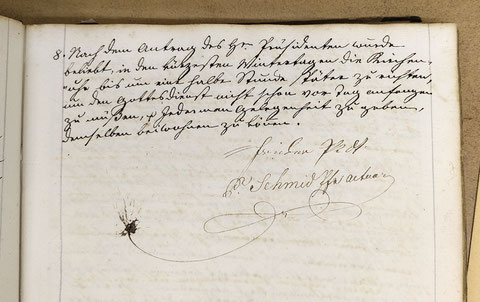 8. Nach dem Antrag des Hr. Präsidenten wurde
beliebt, in den kürzesten Wintertagen die Kirchen-
uhr bis um eine halbe Stunde später zu richten,
um den Gottesdienst nicht schon vor Tag anfangen
zu müßen, u. Jedermann Gelegenheit zu geben,
demselben beiwohnen zu können.
Schmid Pfr. Actuar